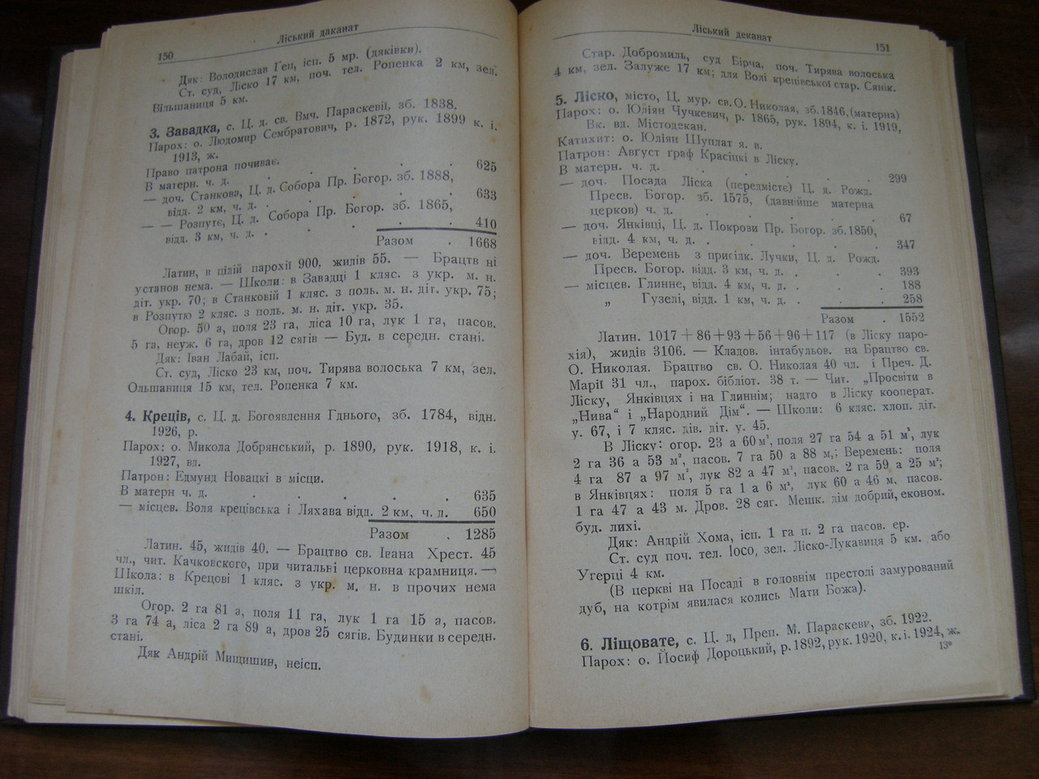 150
Ліський даканат
Дяк: Володислав Ген, ісп. 5 мр. (дяківки).
Ст. суд, Ліско 17 км, поч. тел. Ропенка 2 км, зел.
Вільшаниця 5 км.
3. Завадка, с. Ц. д. св. Вмч. Параскевії, зб. 1838.
Парох: о. Людомир Сембратович, р. 1872, рук. 1899 к. і.
1913, ж.
Право патрона почиває.
В матерн. ч. д. . . . . . 625
— доч. Станкова, Ц. д. Собора Пр. Богор. зб. 1888,
відд. 2 км, ч. д. . . . . . 633
— — Розпутє, Ц. д. Собора Пр. Богор. зб. 1865,
відд. 3 км, ч. д. . . . . . 410
Разом . 1668
Латин, в цілій парохії 900, жидів 55. — Брацтв ні
установ нема. — Школи: в Завадці 1 кляс. з укр. м. н.
діт. укр. 70; в Станковій 1 кляс. з поль. м. н. діт. укр. 75;
в Розпутю 2 кляс. з поль. м. н. діт. укр. 35.
Огор. 50 а, поля 23 га, ліса 10 га, лук 1 га, пасов.
5 га, неуж. 6 га, дров 12 сягів — Буд. в середн. стані.
Дяк: Іван Лабай, ісп.
Ст. суд, Ліско 23 км, поч. Тирява волоська 7 км, зел.
Ольшаниця 15 км, тел. Ропенка 7 км.
4. Креців, с. Ц. д. Богоявлення Гднього, зб. 1784, відн.
1926, р.
Парох: о. Микола Добрянський, р. 1890, рук. 1918, к. і.
1927, вд.
Патрон: Едмунд Новацкі в місци.
В матерн ч. д. . . . . . 635
— місцев. Воля крецівська і Ляхава відд. 2 км, ч. д. 650
Разом . 1285
Латин. 45, жидів 40. — Брацтво св. Івана Хрест. 45
чл., чит. Качковского, при читальні церковна крамниця. —
Школа: в Крецові 1 кляс. з укр. м. н. в прочих нема
шкіл.
Огор. 2 га 81 а, поля 11 га, лук 1 га 15 а, пасов.
3 га 74 а, ліса 2 га 89 а, дров 25 сягів. Будинки в середн.
стані.
Дяк Андрій Мищишин, неісп.
Ліський деканат
151
Стар. Добромиль, суд Бірча, поч. Тирява волоська
4 км, зел. Залуже 17 км; для Волі крецівської стар. Сянік.
5. Ліско, місто, Ц. мур. св. О. Николая, зб. 1846, (матерна)
Парох: о. Юліян Чучкевич, р. 1865, рук. 1894, к. і. 1919,
Вк. вд. Містодекан.
Катихит: о. Юліян Шуплат я. в.
Патрон: Август граф Красіцкі в Ліску.
В матерн. ч. д. . . . . . 299
— доч. Посада Ліска (передмістє) Ц. д. Рожд.
Пресв. Богор. зб. 1575, (давнійше матерна
церков) ч. д. . . . . . 67
— доч. Янківці, Ц. д. Покрови Пр. Богор. зб. 1850,
відд. 4 км, ч. д. . . . . . 347
— доч. Веремень з присілк. Лучки, Ц. д. Рожд.
Пресв. Богор. відд. 3 км, ч. д. . . . 393
— місцев. Глинне, відд. 4 км, ч. д. . . . 188
„ Гузелі, відд. 1 км, ч. д. . . . 258
Разом . 1552
Латин. 1017 + 86 + 93 + 56 + 96 + 117 (в Ліску паро-
хія), жидів 3106. — Кладов. інтабульов. на Брацтво св.
О. Николая. Брацтво св. О. Николая 40 чл. і Преч. Д.
Марії 31 чл., парох. бібліот. 38 т. — Чит. „Просвіти в
Ліску, Янківцях і на Глиннім; надто в Ліску кооперат.
„Нива“ і „Народний Дім“. — Школи: 6 кляс. хлоп. діт.
у. 67, і 7 кляс. дів. діт. у. 45.
В Ліску: огор. 23 а 60 м², поля 27 га 54 а 51 м², лук
2 га 36 а 53 м², пасов. 7 га 50 а 88 м,; Веремень: поля
4 га 87 а 97 м², лук 82 а 47 м², пасов. 2 га 59 а 25 м²;
в Янківцях: поля 5 га 1 а 6 м², лук 60 а 46 м, пасов.
1 га 47 а 43 м. Дров. 28 сяг. Мешк. дім добрий, економ.
буд. лихі.
Дяк: Андрій Хома, ісп. 1 га п. 2 га пасов. ер.
Ст. суд поч. тел. loco, зел. Ліско-Лукавиця 5 км. або
Угерці 4 км.
(В церкві на Посаді в головнім престолі замурований
дуб, на котрім явилася колись Мати Божа).
6. Ліщовате, с. Ц. д, Преп. М. Параскеви, зб. 1922.
Парох: о. Йосиф Дороцький, р. 1892, рук. 1920, к. і. 1924, ж.
13*